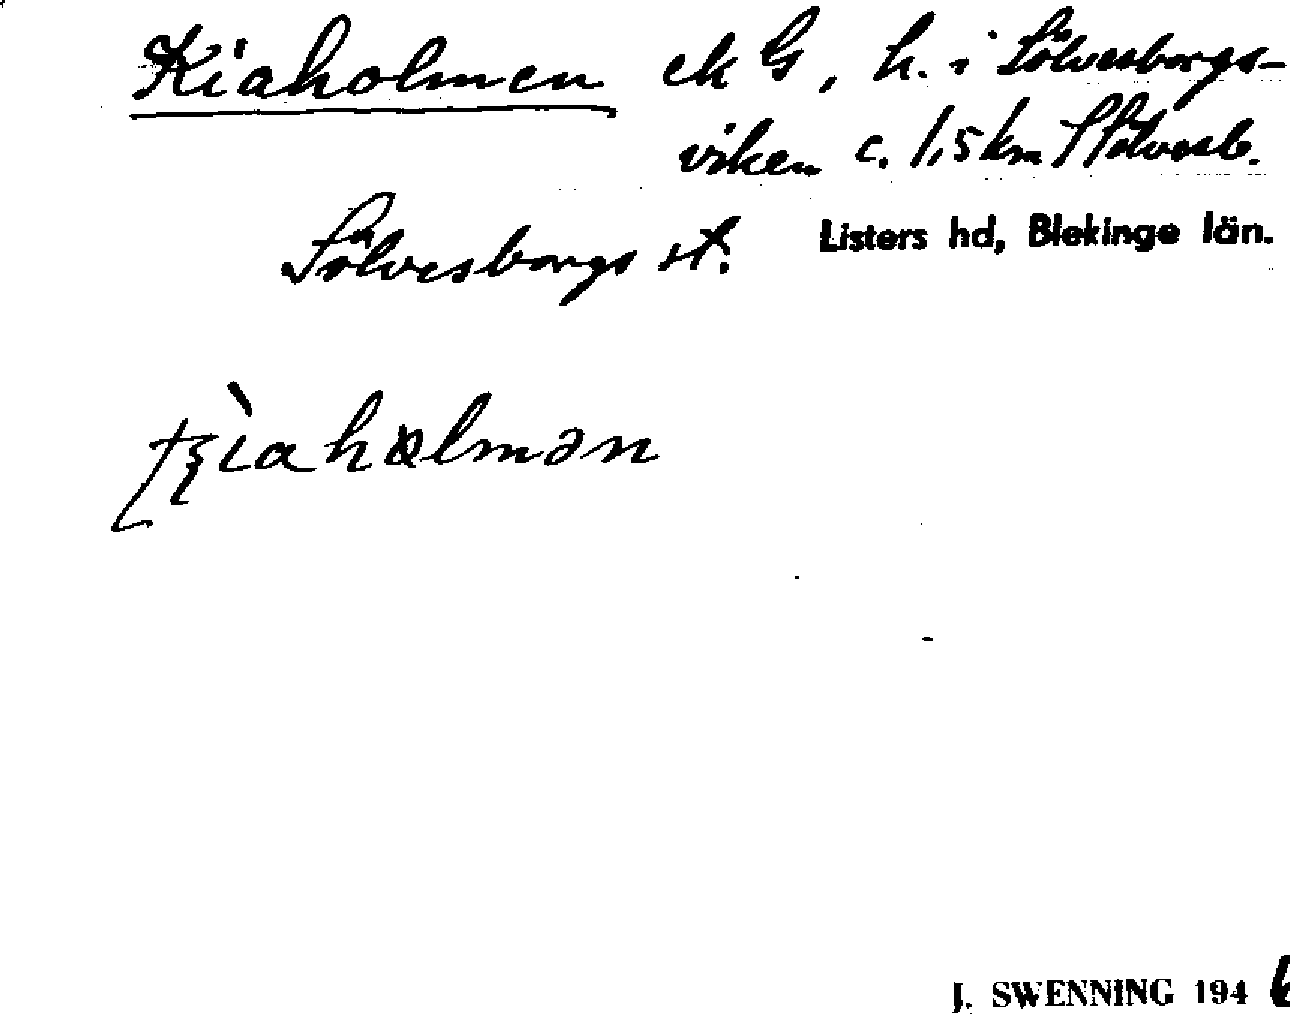 Kiaholmen ek G, h. i Sölvesborgs-
viken c. 1,5 km S Sölvesb.
Sölvesborgs st. Listers hd, Blekinge län.
J. SWENNING 1946